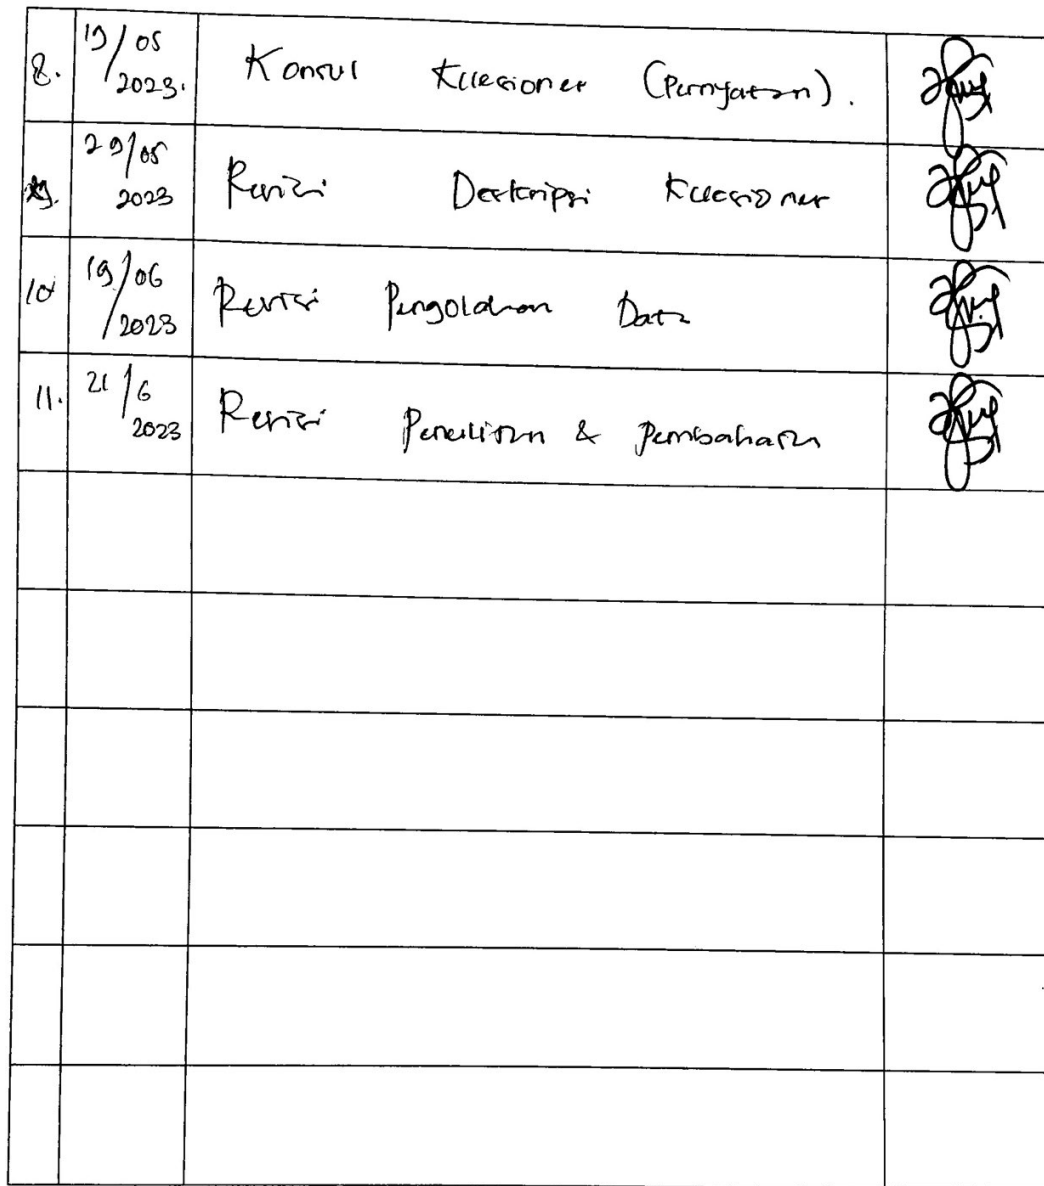 8. 19/05 2023. Konsul Kuesioner (Pernyataan).
9. 29/05 2023 Revisi Deskripsi Kuesioner
10 19/06 2023 Revisi Pengolahan Data
11. 21/6 2023 Revisi Penelitian & Pembahasan